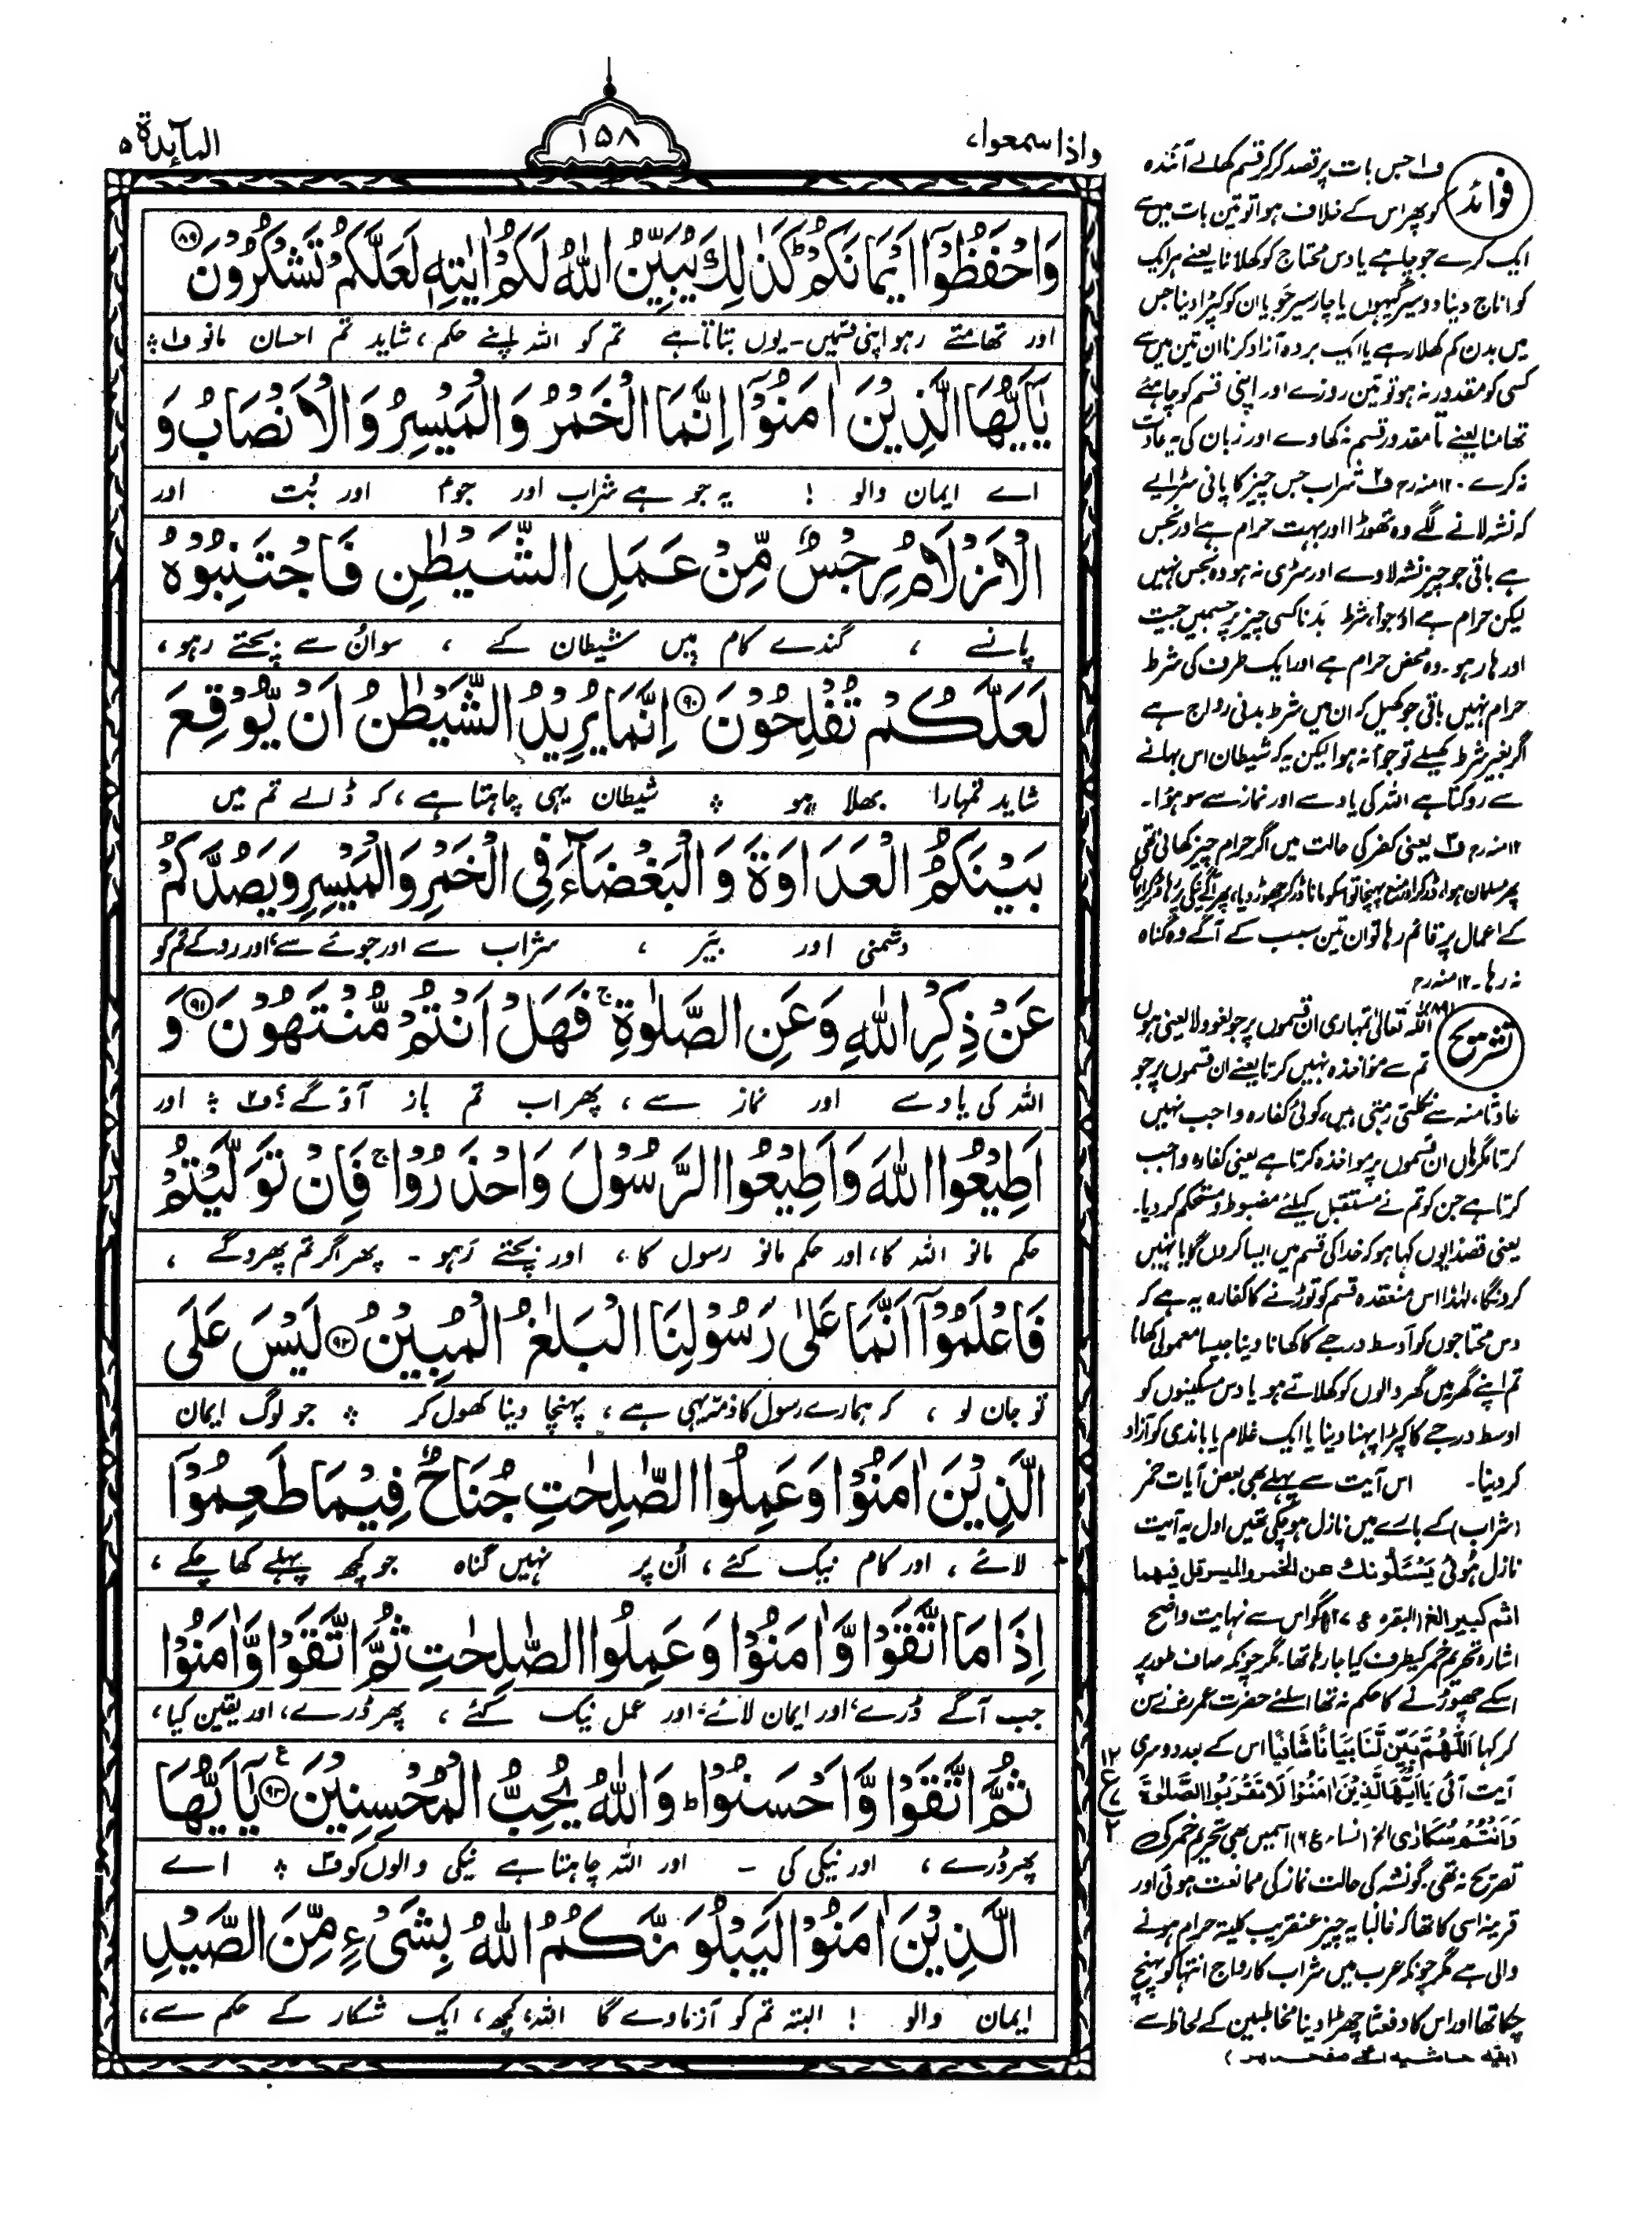 واذا سمعوا،
۱۵۸
المآئدة ۵
وَاحْفَظُوْٓا اَيْمَانَكُمْ ؕ كَذٰلِكَ يُبَيِّنُ اللّٰهُ لَكُمْ اٰيٰتِهٖ لَعَلَّكُمْ تَشْكُرُوْنَ ۸۹
اور تھامتے رہو اپنی قسمیں۔ یوں بتاتا ہے تم کو اللہ اپنے حکم، شاید تم احسان مانو ف۱ ؞
يٰٓاَيُّهَا الَّذِيْنَ اٰمَنُوْٓا اِنَّمَا الْخَمْرُ وَالْمَيْسِرُ وَالْاَنْصَابُ وَ
اے ایمان والو ! یہ جو ہے شراب اور جوا اور بُت اور
الْاَزْلَامُ رِجْسٌ مِّنْ عَمَلِ الشَّيْطٰنِ فَاجْتَنِبُوْهُ
پانسے ، گندے کام ہیں شیطان کے ، سو اُن سے بچتے رہو،
لَعَلَّكُمْ تُفْلِحُوْنَ ۹۰ اِنَّمَا يُرِيْدُ الشَّيْطٰنُ اَنْ يُّوْقِعَ
شاید تمہارا بھلا ہو ؞ شیطان یہی چاہتا ہے، کہ ڈالے تم میں
بَيْنَكُمُ الْعَدَاوَةَ وَالْبَغْضَآءَ فِي الْخَمْرِ وَالْمَيْسِرِ وَيَصُدَّكُمْ
دشمنی اور بیَر ، شراب سے اور جوئے سے، اور روکے تم کو
عَنْ ذِكْرِ اللّٰهِ وَعَنِ الصَّلٰوةِ ۚ فَهَلْ اَنْتُمْ مُّنْتَهُوْنَ ۹۱ وَ
اللہ کی یاد سے اور نماز سے ، پھر اب تم باز آؤ گے؟ ف۲ ؞ اور
اَطِيْعُوا اللّٰهَ وَاَطِيْعُوا الرَّسُوْلَ وَاحْذَرُوْا ۚ فَاِنْ تَوَلَّيْتُمْ
حکم مانو اللہ کا، اور حکم مانو رسول کا ، اور بچتے رہو ۔ پھر اگر تم پھروگے ،
فَاعْلَمُوْٓا اَنَّمَا عَلٰى رَسُوْلِنَا الْبَلٰغُ الْمُبِيْنُ ۹۲ لَيْسَ عَلَى
تو جان لو ، کہ ہمارے رسول کا ذمہ یہی ہے، پہنچا دینا کھول کر ؞ جو لوگ ایمان
الَّذِيْنَ اٰمَنُوْا وَعَمِلُوا الصّٰلِحٰتِ جُنَاحٌ فِيْمَا طَعِمُوْٓا
لائے ، اور کام نیک کئے ، اُن پر نہیں گناہ جو کچھ پہلے کھا چکے ،
اِذَا مَا اتَّقَوْا وَّاٰمَنُوْا وَعَمِلُوا الصّٰلِحٰتِ ثُمَّ اتَّقَوْا وَّاٰمَنُوْا
جب آگے ڈرے، اور ایمان لائے، اور عمل نیک کئے ، پھر ڈرے، اور یقین کیا،
ثُمَّ اتَّقَوْا وَّاَحْسَنُوْا ؕ وَاللّٰهُ يُحِبُّ الْمُحْسِنِيْنَ ۹۳ يٰٓاَيُّهَا
پھر ڈرے ، اور نیکی کی ۔ اور اللہ چاہتا ہے نیکی والوں کو ف۳ ؞ اے
الَّذِيْنَ اٰمَنُوْا لَيَبْلُوَنَّكُمُ اللّٰهُ بِشَيْءٍ مِّنَ الصَّيْدِ
ایمان والو ! البتہ تم کو آزماوے گا اللہ، کچھ، ایک شکار کے حکم سے،
۱۲
ع
۷
۲
فوائد
ف۱ جس بات پر قصد کر کر قسم کھالے آئندہ
کو پھر اس کے خلاف ہوا تو تین بات میں سے
ایک کرے جو چاہے یا دس محتاج کو کھلانا یعنے ہر ایک
کو اناج دینا دو سیر گیہوں یا چار سیر جَو یا ان کو کپڑا دینا جس
میں بدن کم کھلا رہے یا ایک بردہ آزاد کرنا ان تین میں سے
کسی کو مقدور نہ ہو تو تین روزے اور اپنی قسم کو چاہئے
تھامنا یعنے تا مقدور قسم نہ کھاوے اور زبان کی یہ عادت
نہ کرے ۔ ۱۲ منہ رح ف۲ شراب جس چیز کا پانی سڑایے
کہ نشہ لانے لگے وہ تھوڑا اور بہت حرام ہے اور نجس
ہے باقی جو چیز نشہ لاوے اور سڑی نہ ہو وہ نجس نہیں
لیکن حرام ہے اور جوأ، شرط بَدنا کسی چیز پر جسمیں جیت
اور ہار ہو ۔ وہ محض حرام ہے اور ایک طرف کی شرط
حرام نہیں باقی جو کھیل کہ ان میں شرط بدنی رواج ہے
اگر بغیر شرط کھیلے تو جوأ نہ ہوا لیکن یہ کہ شیطان اس بہانے
سے روکتا ہے اللہ کی یاد سے اور نماز سے سو ہوا ۔
۱۲ منہ رح ف۳ یعنی کفر کی حالت میں اگر حرام چیز کھائی تھی
پھر مسلمان ہوا، ڈر کر اور منع پہنچا تو اسکو مانا ڈر کر چھوڑ دیا، پھر آگے نیکی پر رہا ڈر کر ایمان
کے اعمال پر قائم رہا تو ان تین سبب کے آگے وہ گناہ
نہ رہا ۔ ۱۲ منہ رح
تشریح
(۸۹) اللہ تعالیٰ تمہاری ان قسموں پر جو لغو ولا یعنی ہوں
تم سے مؤاخذہ نہیں کرتا یعنے ان قسموں پر جو
عادتًا منہ سے نکلتی رہتی ہیں، کوئی کفارہ واجب نہیں
کرتا مگر ہاں ان قسموں پر مواخذہ کرتا ہے یعنی کفارہ واجب
کرتا ہے جن کو تم نے مستقبل کیلئے مضبوط و مستحکم کر دیا۔
یعنی قصدًا یوں کہا ہو کہ خدا کی قسم میں ایسا کروں گا یا نہیں
کرونگا، لہٰذا اس منعقدہ قسم کو توڑنے کا کفارہ یہ ہے کہ
دس محتاجوں کو اوسط درجے کا کھانا دینا جیسا معمولی کھانا
تم اپنے گھر میں گھر والوں کو کھلاتے ہو یا دس مسکینوں کو
اوسط درجے کا کپڑا پہنا دینا یا ایک غلام یا باندی کو آزاد
کر دینا۔ اس آیت سے پہلے بھی بعض آیات خمر
(شراب) کے بارے میں نازل ہو چکی تھیں اول یہ آیت
نازل ہوئی يَسْئَلُونَكَ عن الخمر والميسر قل فيهما
اثم كبير الخ (البقرہ ع ۲۷) گو اس سے نہایت واضح
اشارہ تحریم خمر کیطرف کیا جا رہا تھا۔ مگر چونکہ صاف طور پر
اسکے چھوڑنے کا حکم نہ تھا اسلئے حضرت عمر رض نے سن
کر کہا اَللّٰهُمَّ بَيِّنْ لَّنَا بَيَانًا شَافِيًا اس کے بعد دوسری
آیت آئی يٰاَيُّهَا الَّذِيْنَ اٰمَنُوْا لَا تَقْرَبُوا الصَّلٰوةَ
وَاَنْتُمْ سُكَارٰى الخ (نساء، ع ۶) اسمیں بھی تحریم خمر کی
تصریح نہ تھی۔ گو نشہ کی حالت نماز کی ممانعت ہوئی اور
قرینہ اسی کا تھا کہ غالبا یہ چیز عنقریب کلیۃ حرام ہونے
والی ہے مگر چونکہ عرب میں شراب کا رواج انتہا کو پہنچ
چکا تھا اور اس کا دفعتًا چھڑا دینا مخاطبین کے لحاظ سے
(بقیہ حاشیہ اگلے صفحہ پر)